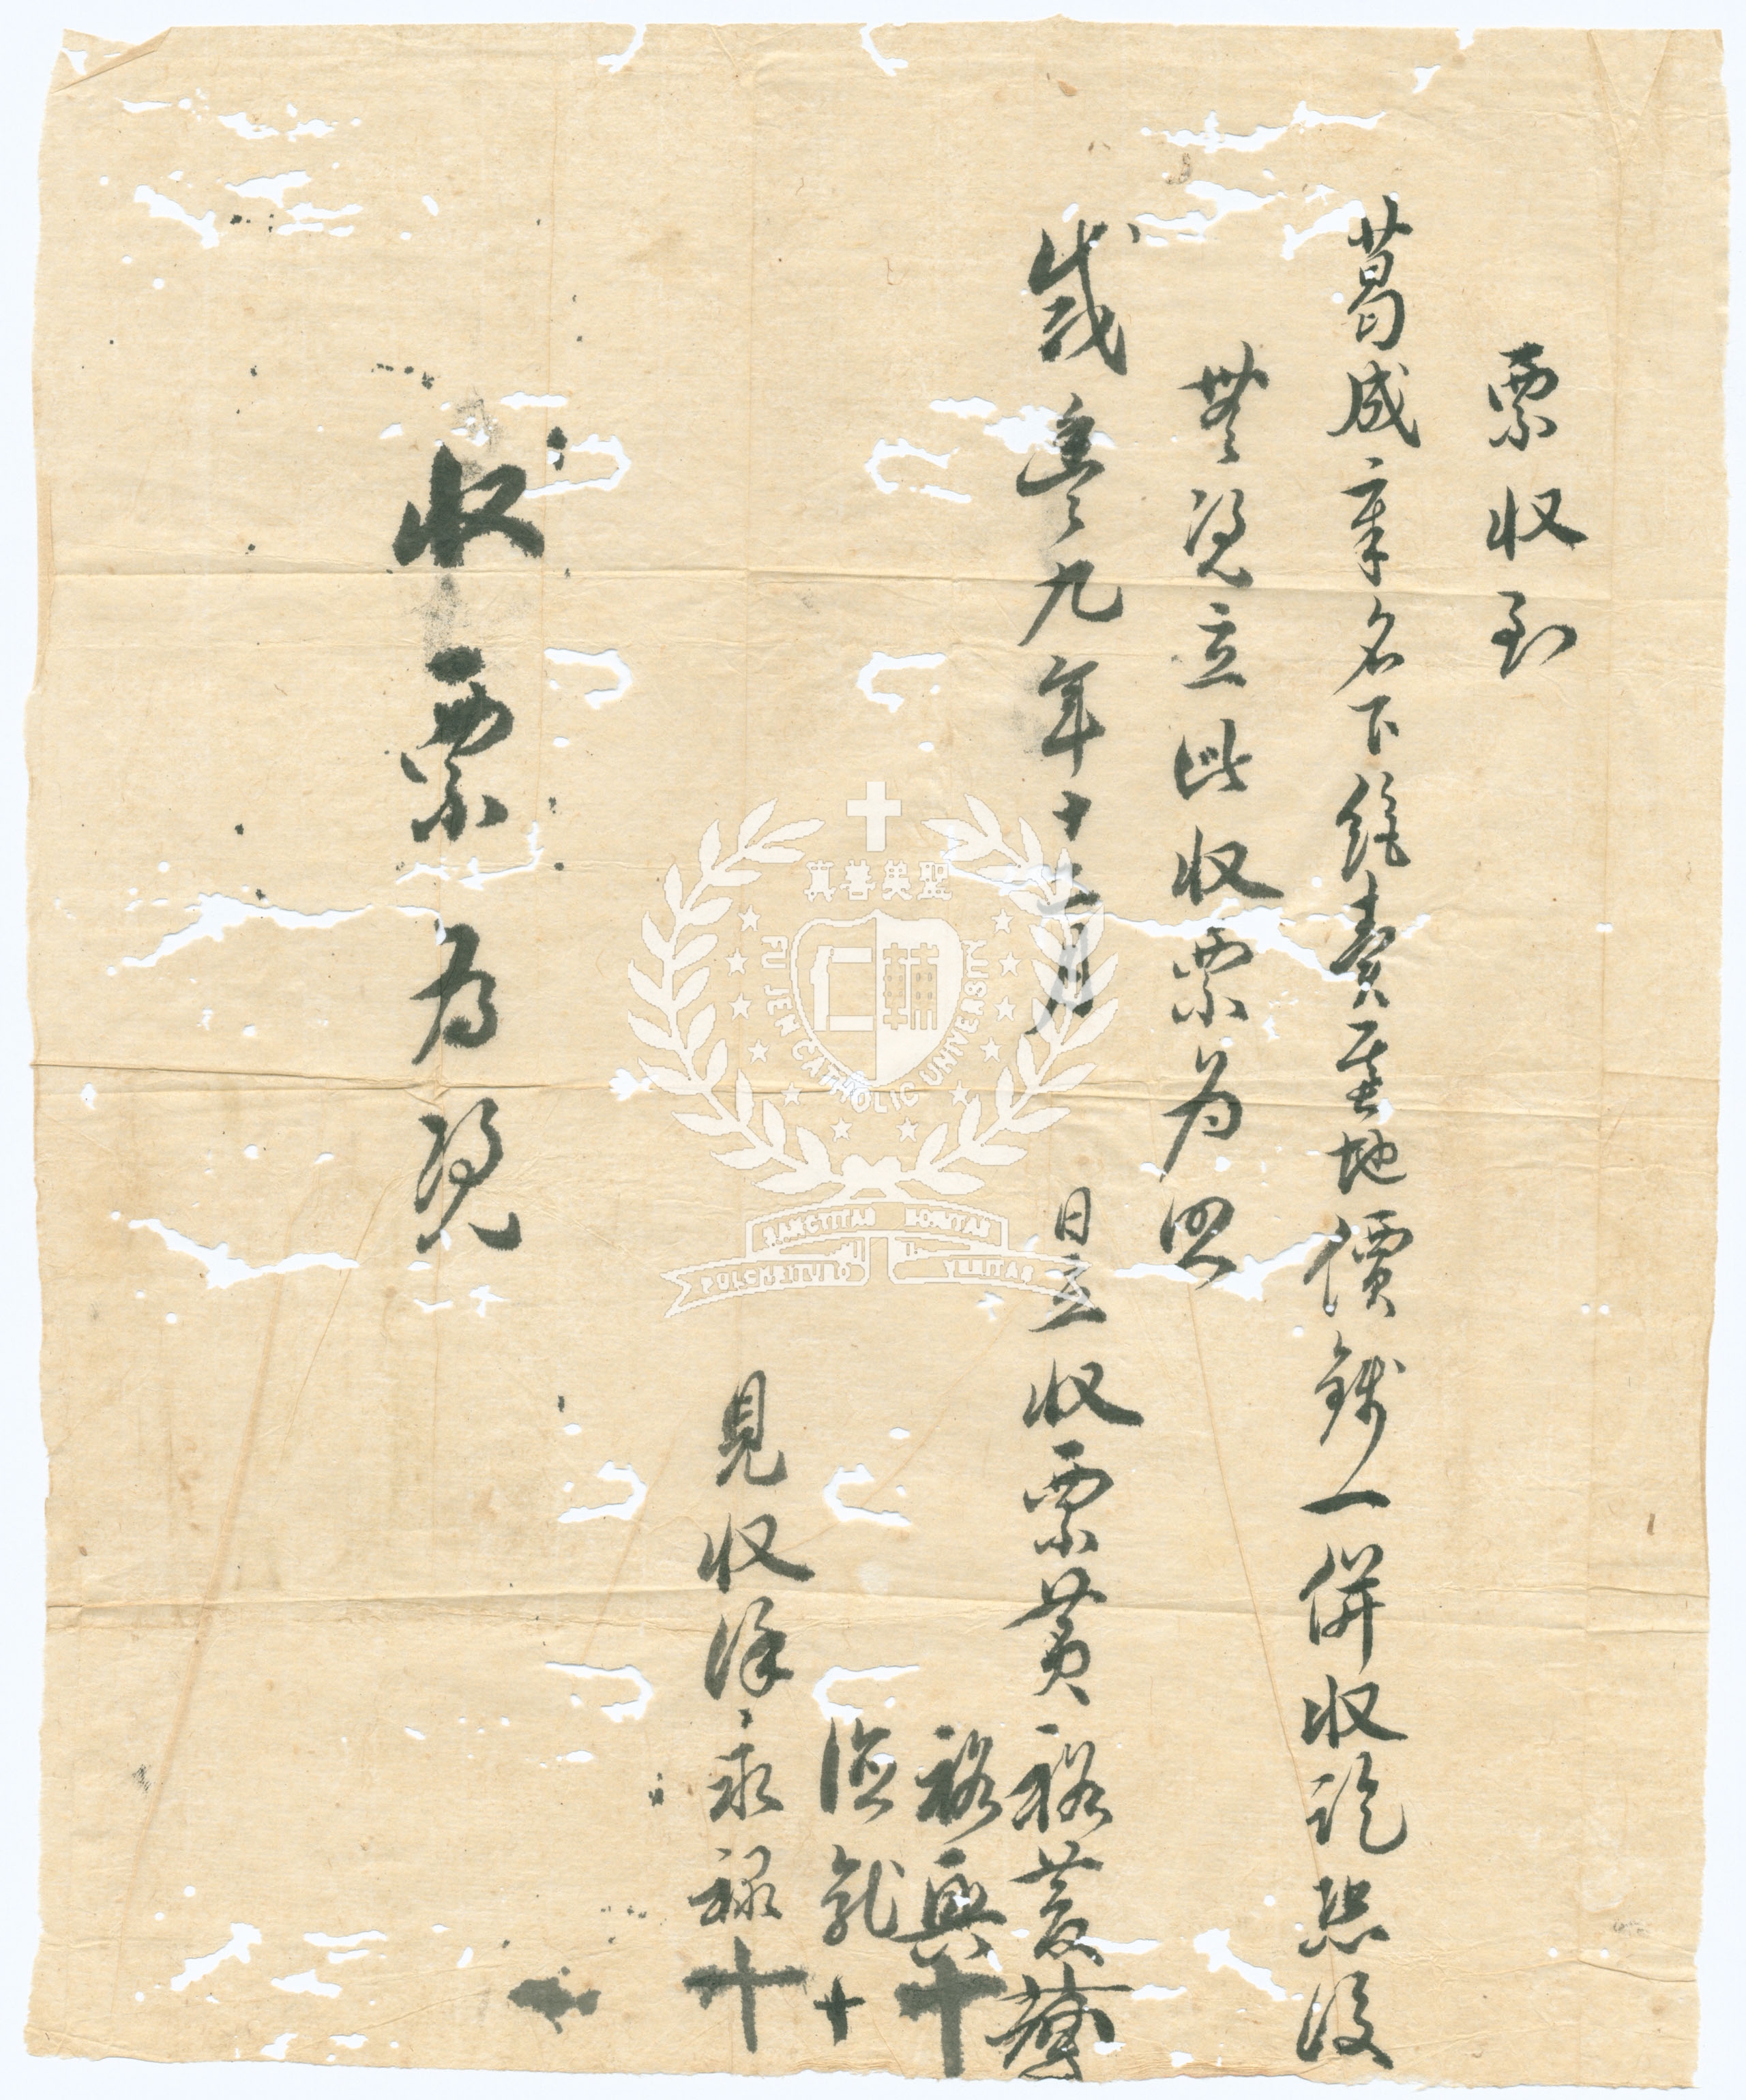 票收到
葛成章名下絕賣基地價錢一併收訖恐後
無凴立此收票為照
咸豐九年十二月 日立收票黃裕發
裕興十
德乾十
見收徐永祿十
收票為凴
真善美聖
FU JEN CATHOLIC UNIVERSITY
SANCTITAS BONITAS
PULCHRITUDO VERITAS